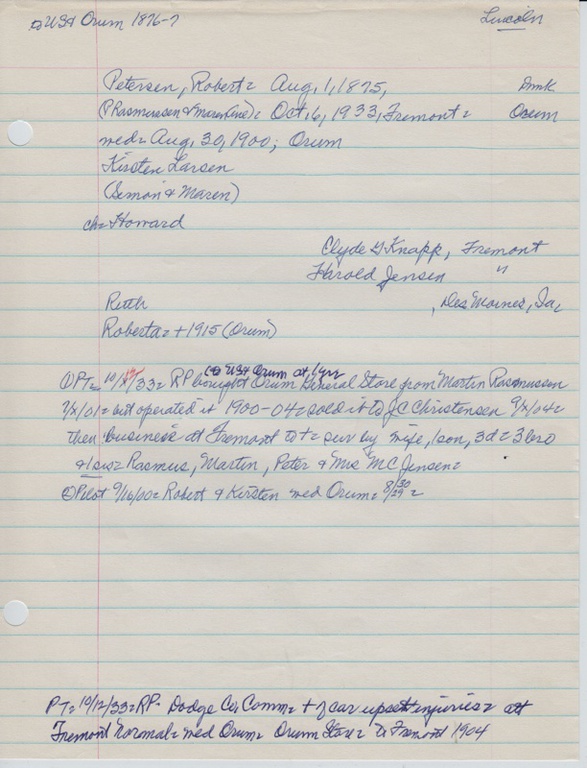 to USA Orum 1876-7 Lincoln
Petersen, Robert = Aug. 1, 1875, Dmk
(P Rasmussen & Maren Line) = Oct. 6, 1933, Fremont = Orum
wed = Aug. 30, 1900; Orum
Kirsten Larsen
(Simon & Maren)
ch = Howard
Clyde G Knapp, Fremont
Harold Jensen "
Ruth , Des Moines, Ia,
Roberta = + 1915 (Orum)
(to USA Orum at 1 yr
① PT = 10/ /33 = RP bought Orum General Store from Martin Rasmussen
7/X/01 = but operated it 1900-04 = sold it to JC Christensen 9/X/04 =
then business at Fremont to + = sur by wife, 1 son, 3d = 3 bro
& 1 sis = Rasmus, Martin, Peter & Mrs MC Jensen =
② Pilot 9/16/00 = Robert & Kirsten wed Orum = 8/30 =
8/29
PT = 10/12/33 = RP - Dodge Co, Comm = + of car upset injuries = att
Fremont Normal = wed Orum = Orum Store = to Fremont 1904